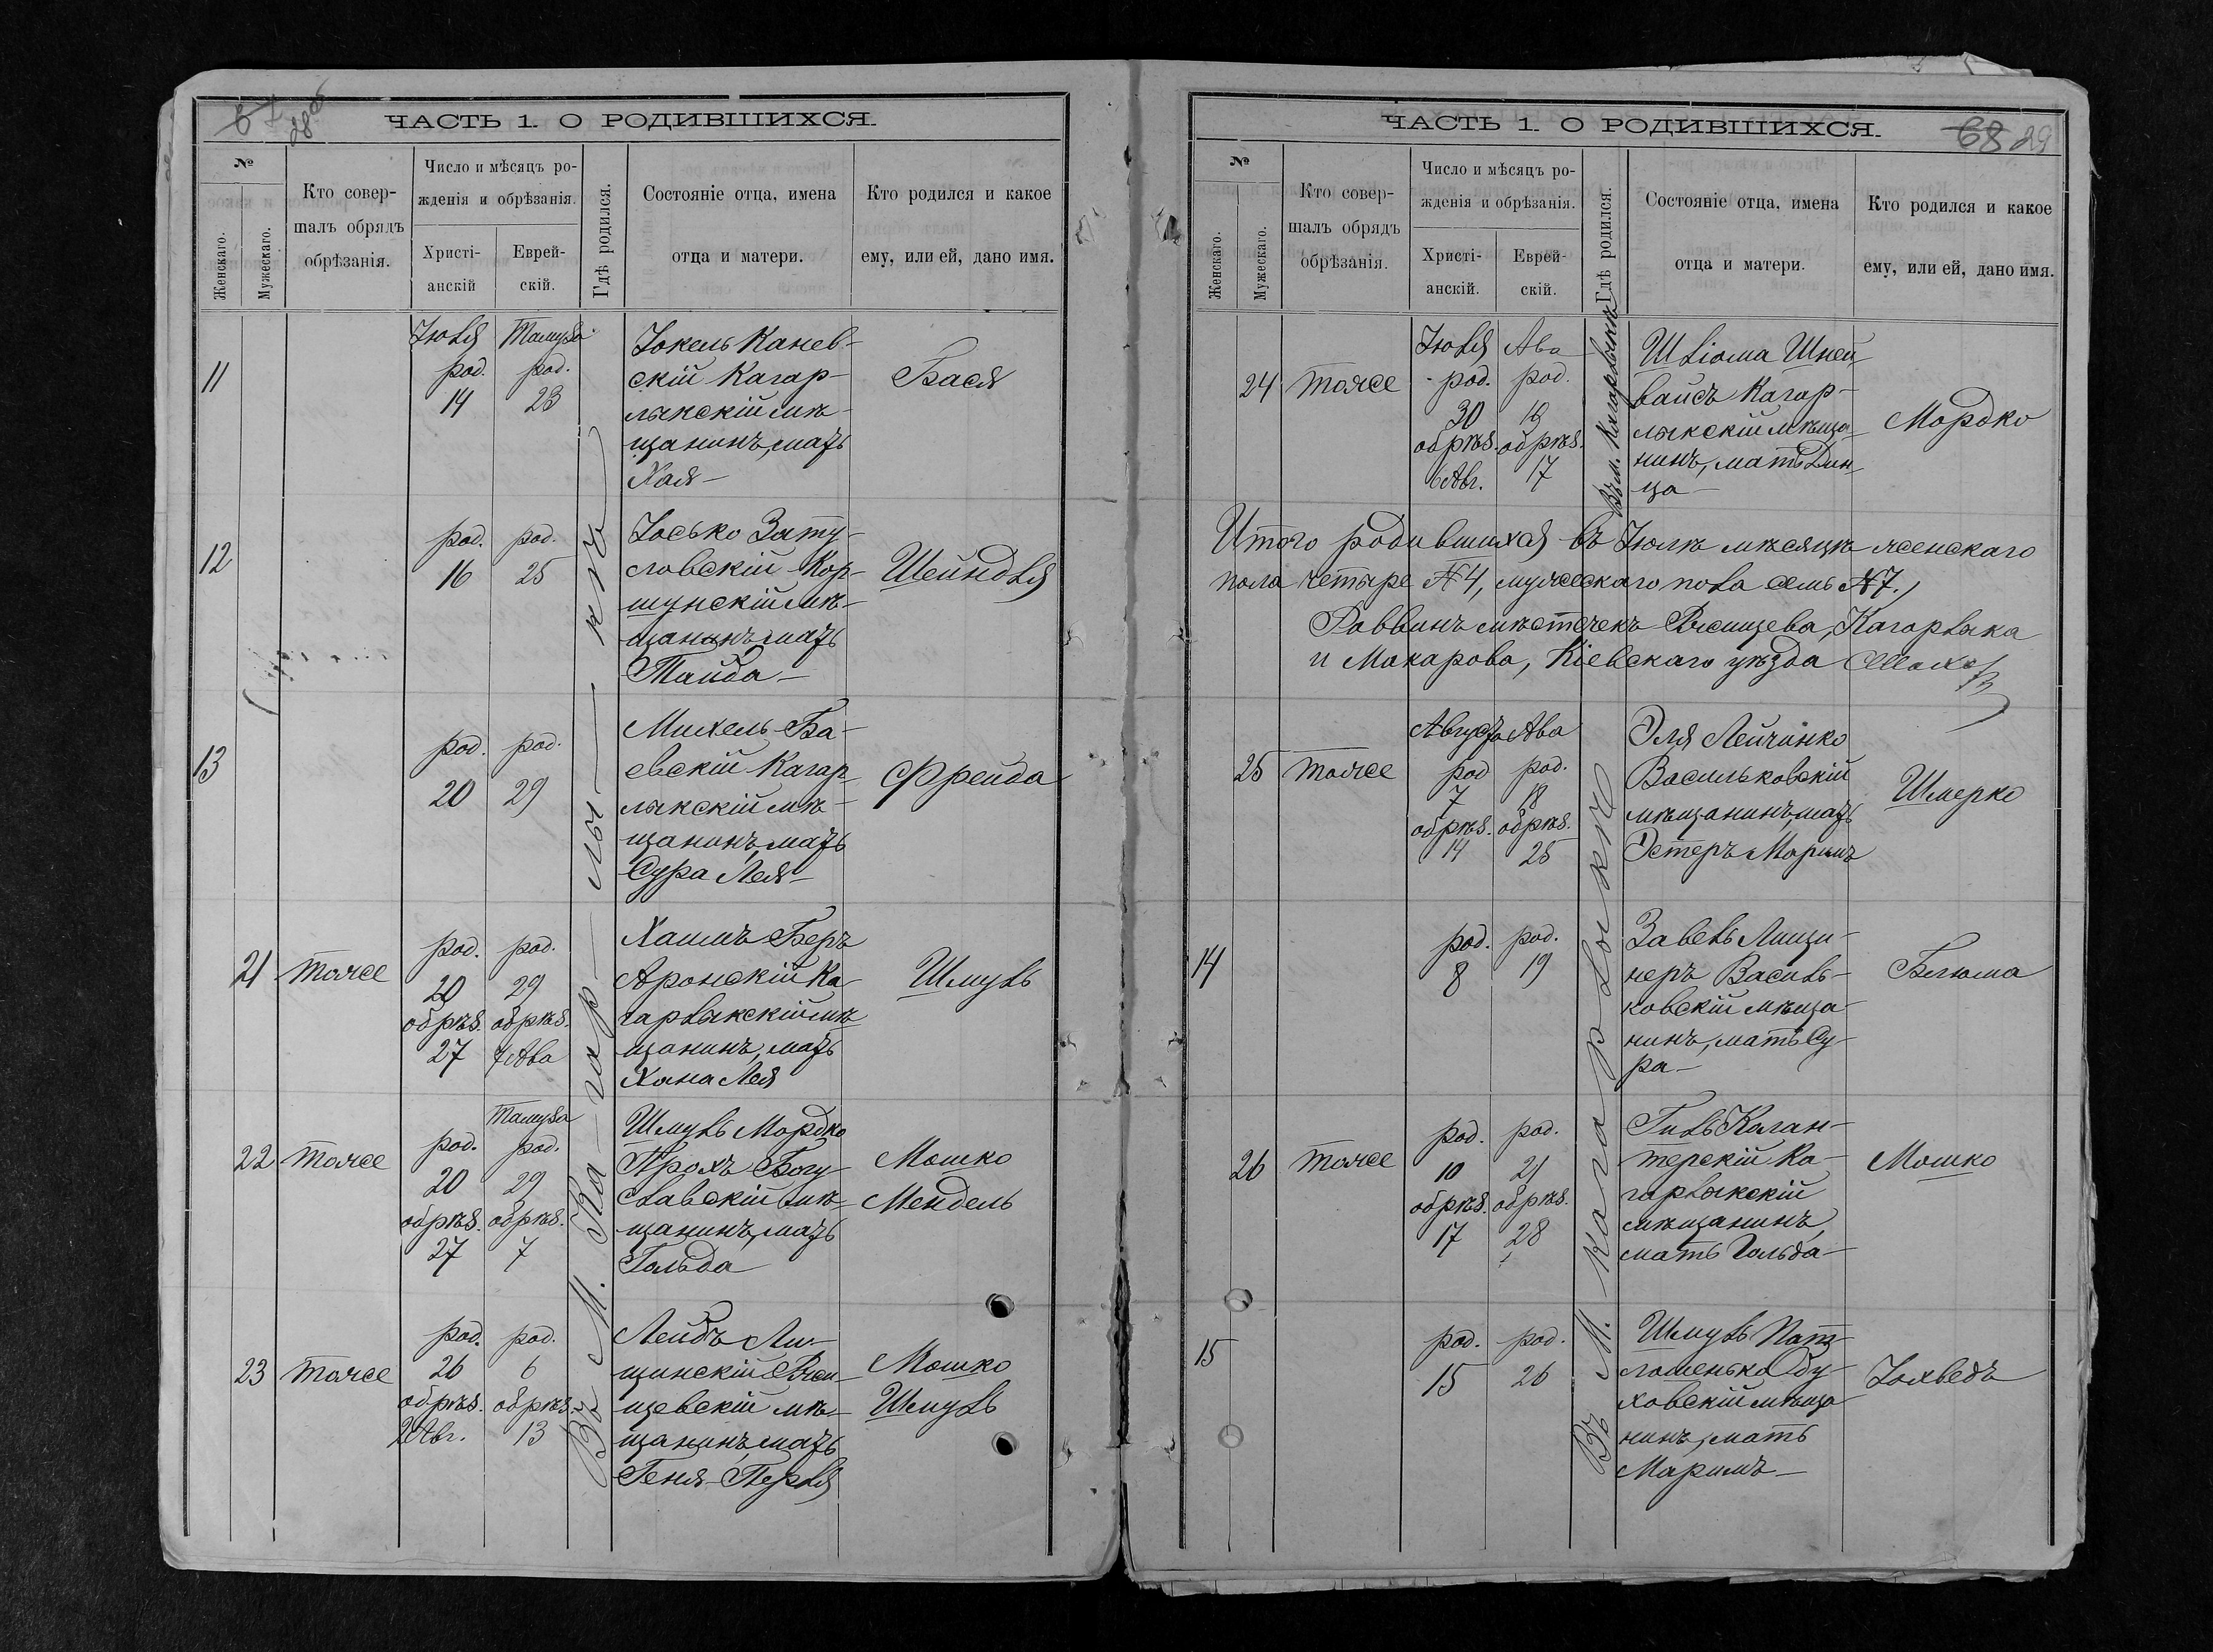 67
28об
ЧАСТЬ 1. О РОДИВШИХСЯ.
№
Женскаго.
Мужескаго.
Кто совер-
шалъ обрядъ
обрѣзанія.
Число и мѣсяцъ ро-
жденія и обрѣзанія.
Христі-
анскій
Еврей-
скій.
Гдѣ родился.
Состояніе отца, имена
отца и матери.
Кто родился и какое
ему, или ей, дано имя.
Въ м. Кагарлыкѣ
11
Іюля
род.
14
Тамуза
род.
23
Іокель Канев-
скій Кагар-
лыкскій мѣ-
щанинъ, мать
Хая
Бася
12
род.
16
род.
25
Іосько Зату-
ловскій Кор-
сунскій мѣ-
щанинъ, мать
Тайба
Шейндля
13
род.
20
род.
29
Михель Ба-
евскій Кагар-
лыкскій мѣ-
щанинъ, мать
Сура Лея
Фрейда
21
тоже
род.
20
обрѣз.
27
род.
29
обрѣз.
7 Ава
Хаимъ Беръ
Аронскій Ка-
гарлыкскій мѣ-
щанинъ, мать
Хана Лея
Шмуль
22
тоже
род.
20
обрѣз.
27
Тамуза
род.
29
обрѣз.
7
Шмуль Мордко
Прохъ Богу-
славскій мѣ-
щанинъ, мать
Гольда
Мошко
Мендель
23
тоже
род.
26
обрѣз.
2 Авг.
род.
6
обрѣз.
13
Лейбъ Ли-
щинскій Ржи-
щевскій мѣ-
щанинъ, мать
Геня-Перля
Мошко
Шмуль
68 29
ЧАСТЬ 1. О РОДИВШИХСЯ.
№
Женскаго.
Мужескаго.
Кто совер-
шалъ обрядъ
обрѣзанія.
Число и мѣсяцъ ро-
жденія и обрѣзанія.
Христі-
анскій.
Еврей-
скій.
Гдѣ родился.
Состояніе отца, имена
отца и матери.
Кто родился и какое
ему, или ей, дано имя.
24
тоже
Іюля
род.
30
обрѣз.
6 Авг.
Ава
род.
10
обрѣз.
17
Въ м. Кагарлыкѣ
Шліома Шней-
вайсъ Кагар-
лыкскій мѣща-
нинъ, мать Дин-
ца
Мордко
Итого родившихся въ Іюлѣ мѣсяцѣ женскаго
пола четыре №4, мужескаго пола семь №7.
Раввинъ мѣстечекъ Ржищева, Кагарлыка
и Макарова, Кіевскаго уѣзда
Въ м. Кагарлыкѣ
25
тоже
Августа
род
7
обрѣз.
14
Ава
род.
18
обрѣз.
25
Эля Лейчинко
Васильковскій
мѣщанинъ, мать
Эстеръ Маримъ
Шмерко
14
род.
8
род.
19
Завель Лищи-
неръ Василь-
ковскій мѣща-
нинъ, мать Су-
ра
Блюма
26
тоже
род.
10
обрѣз.
17
род.
21
обрѣз.
28
Гиль Каган-
терскій Ка-
гарлыкскій
мѣщанинъ,
мать Гольда
Мошко
15
род.
15
род.
26
Шмуль Пат-
лошенько Обу-
ховскій мѣща-
нинъ, мать
Маримъ
Іохведъ